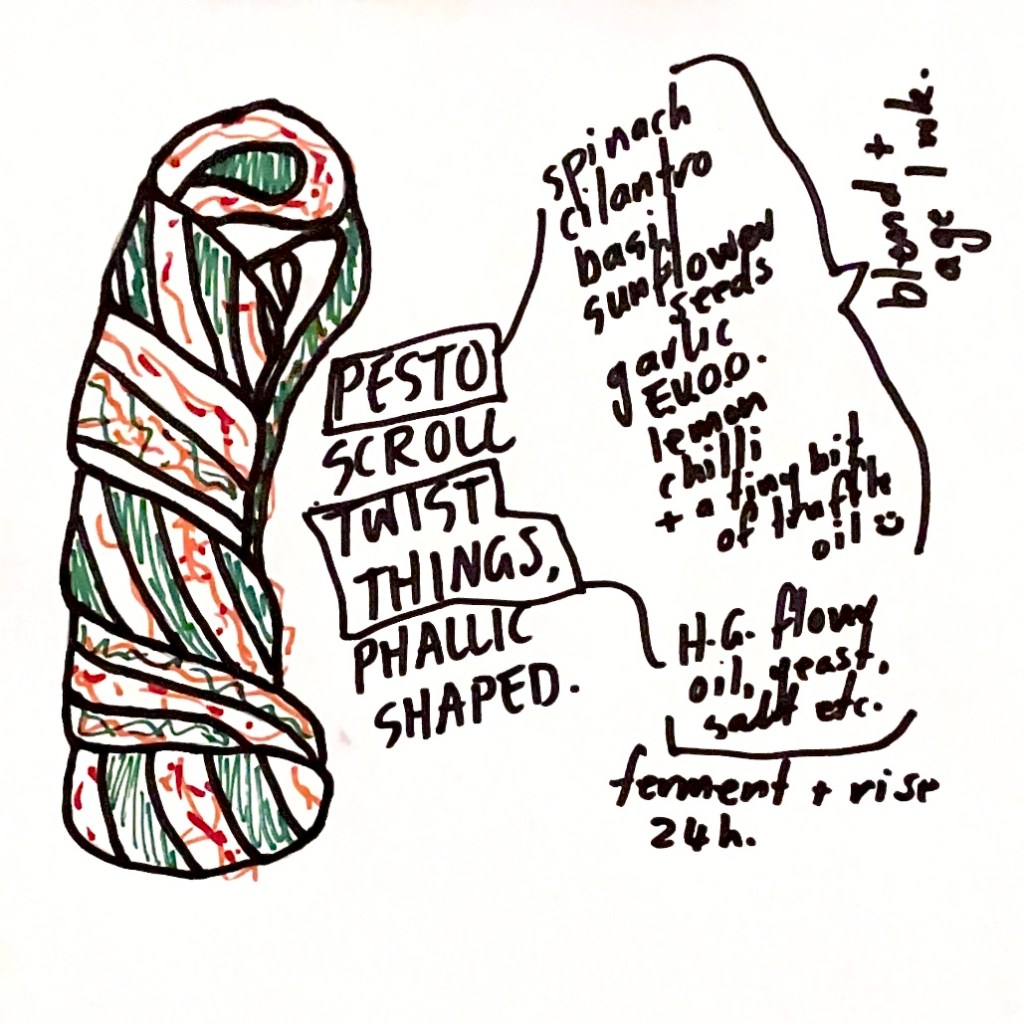 PESTO
SCROLL
TWIST
THINGS,
PHALLIC
SHAPED.
spinach
cilantro
basil
sunflower
seeds
garlic
EVOO.
lemon
chilli
+ a tiny bit
of truffle
oil
blend +
age 1 wk.
H.G. flour
oil, yeast,
salt etc.
ferment + rise
24h.